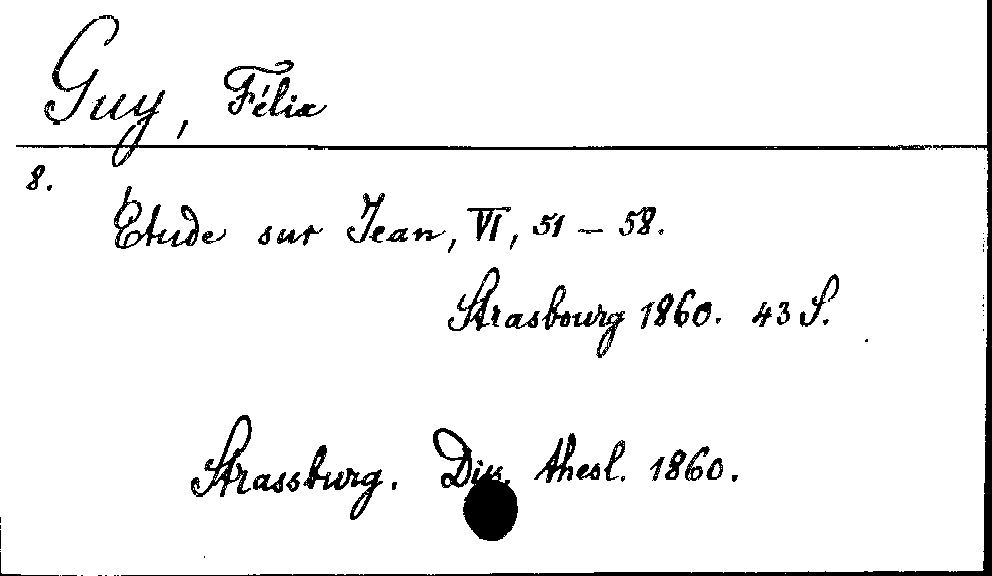 Guy, Félix
8.
Etude sur Jean, VI, 51 – 58.
Strasbourg 1860. 43 S.
Strassburg. Diss. theol. 1860.